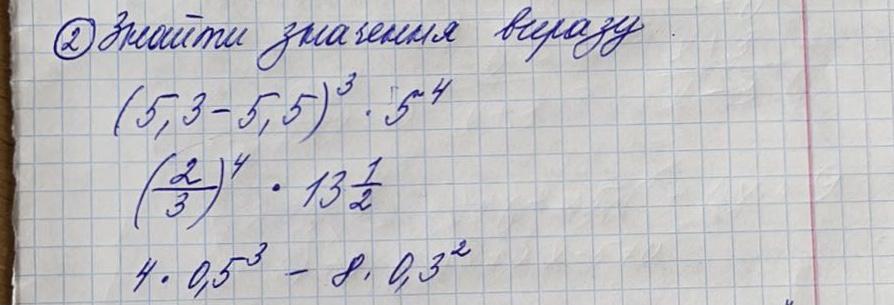 ② Знайти значення виразу
(5,3 - 5,5)³ · 5⁴
(2/3)⁴ · 13 1/2
4 · 0,5³ - 8 · 0,3²